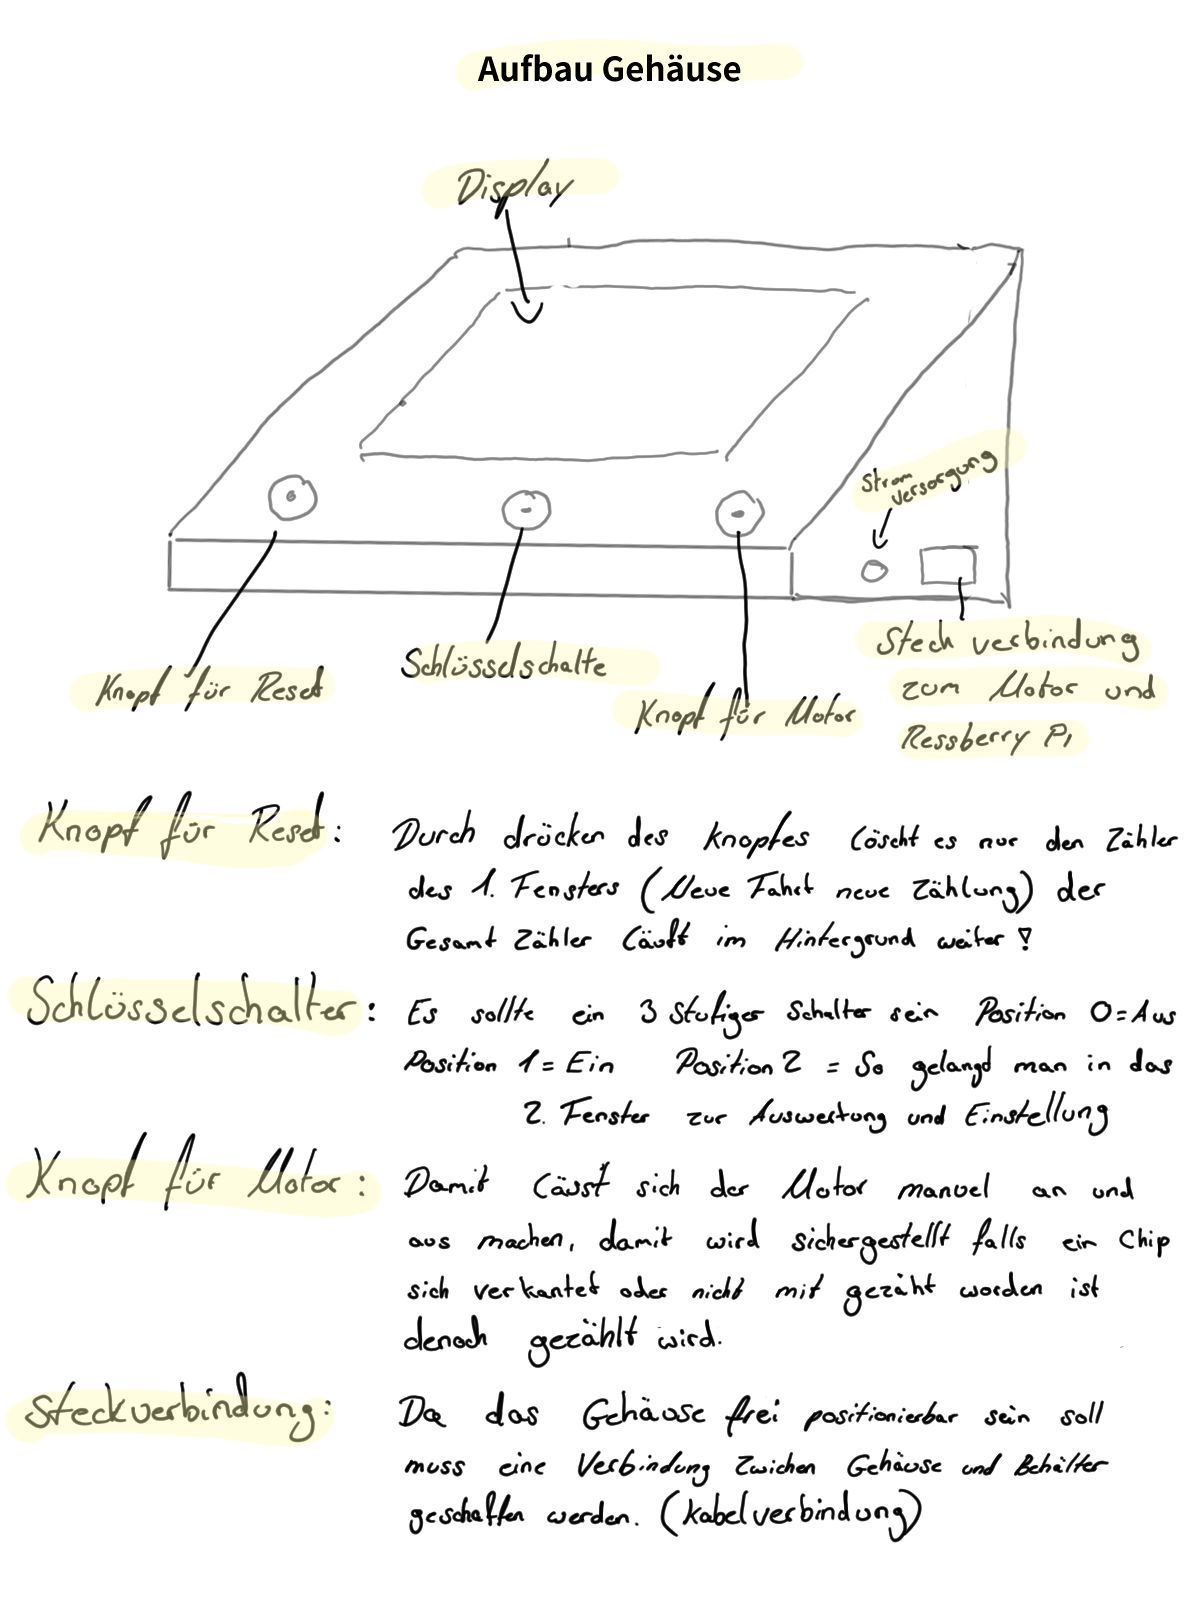 Aufbau Gehäuse
Display
Strom
versorgung
Schlüsselschalte
Knopf für Reset
Knopf für Motor
Steck verbindung
zum Motor und
Ressberry Pi
Knopf für Reset: Durch drücken des Knopfes löscht es nur den Zähler
des 1. Fensters (Neue Fahrt neue Zählung) der
Gesamt Zähler läuft im Hintergrund weiter !
Schlüsselschalter: Es sollte ein 3 Stufiger Schalter sein Position 0=Aus
Position 1=Ein Position 2 = So gelangd man in das
2. Fenster zur Auswertung und Einstellung
Knopf für Motor: Damit läust sich der Motor manuel an und
aus machen, damit wird sichergestellt falls ein Chip
sich verkantet oder nicht mit gezäht worden ist
denoch gezählt wird.
Steckverbindung: Da das Gehäuse frei positionierbar sein soll
muss eine Verbindung zwichen Gehäuse und Behälter
geschaffen werden. (Kabelverbindung)